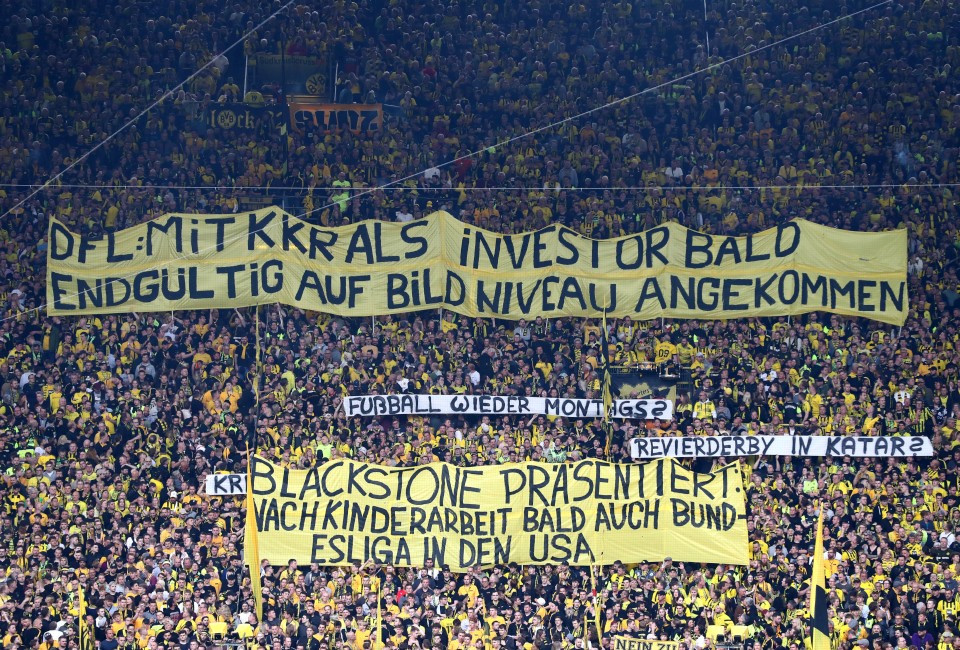 DFL: MIT KKR ALS INVESTOR BALD
ENDGÜLTIG AUF BILD NIVEAU ANGEKOMMEN
FUßBALL WIEDER MONTAGS?
REVIERDERBY IN KATAR?
KR
BLACKSTONE PRÄSENTIERT:
NACH KINDERARBEIT BALD AUCH BUND-
ESLIGA IN DEN USA
NEIN ZU